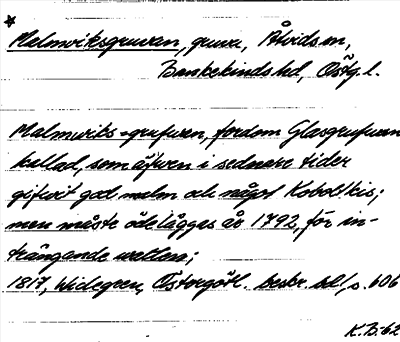 Malmviksgruvan, gruva, Åtvids sn,
Bankekinds hd, Östg. l.
Malmwiks-grufwan, fordom Glasgrufwan
kallad, som äfwen i sednare tider
gifwit god malm och något Koboltkis;
men måste ödeläggas år 1792, för in-
trängande wattens;
1817, Widegren, Östergötl. beskr. II, s. 606
K.B-62